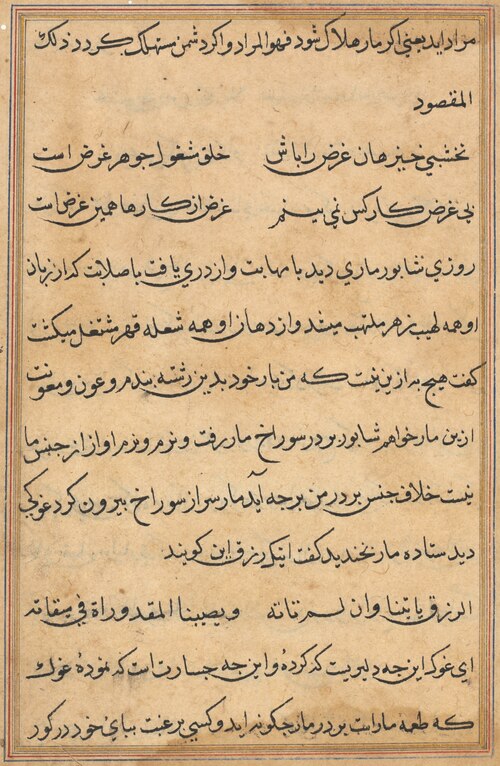 مراد اید یعنی اکر مار هلاک شود فهو المراد و اکر دشمن مستهلک کردد ذلک
المقصود
نخشبی خیز هان غرض را باش خلق مشغول جوهر غرض است
بی غرض کار کس نمی بینم غرض از کارها همین غرض است
روزی شابور ماری دید با مهابت و از دری یافت با صلابت که از زبان
او همه لهیب زهر ملتهب میشد و از دهان او همه شعله قهر مشتعل میکشت
کفت هیچ به ازین نیست که من بار خود بدین رشته بندم و عون و معونت
ازین مار خواهم شابور بر در سوراخ مار رفت و نرم و نرم اواز از جنس ما
نیست خلاف جنس بر در من بر چه آید مار سر از سوراخ بیرون کرد غوکی
دید ستاده مار بخندید کفت اینک رزق این کویند
الرزق یاتینا وان لم تاته ویصیبنا المقدوراة فی میقاته
ای غوک این چه دلیریست که کردهٔ و این چه جسارت است که نمودهٔ غوک
که طعمه مار است بر در مار چکونه اید و کسی برغبت بپای خود در کور